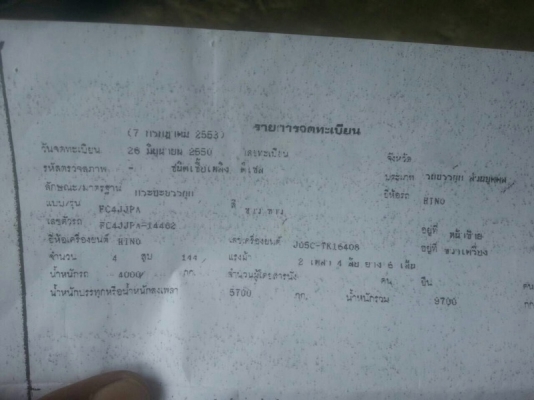 (7 กรกฎาคม 2553) รายการจดทะเบียน
วันจดทะเบียน 26 มิถุนายน 2550 เลขทะเบียน จังหวัด
รหัสตรวจสภาพ - ชนิดเชื้อเพลิง ดีเซล ประเภท รถบรรทุก ส่วนบุคคล
ลักษณะ/มาตรฐาน ยี่ห้อรถ HINO
แบบ/รุ่น FC4JJPA สี ขาว
เลขตัวรถ FC4JJPA-14462 อยู่ที่
ยี่ห้อเครื่องยนต์ HINO เลขเครื่องยนต์ J05C-TK16408 อยู่ที่ ขวาเครื่อง
จำนวน 4 สูบ 144 แรงม้า 2 เพลา 4 ล้อ ยาง 6 เส้น
น้ำหนักรถ 4000 กก. จำนวนผู้โดยสารนั่ง คน ยืน คน
น้ำหนักบรรทุกหรือน้ำหนักลงเพลา 5700 กก. น้ำหนักรวม 9700 กก